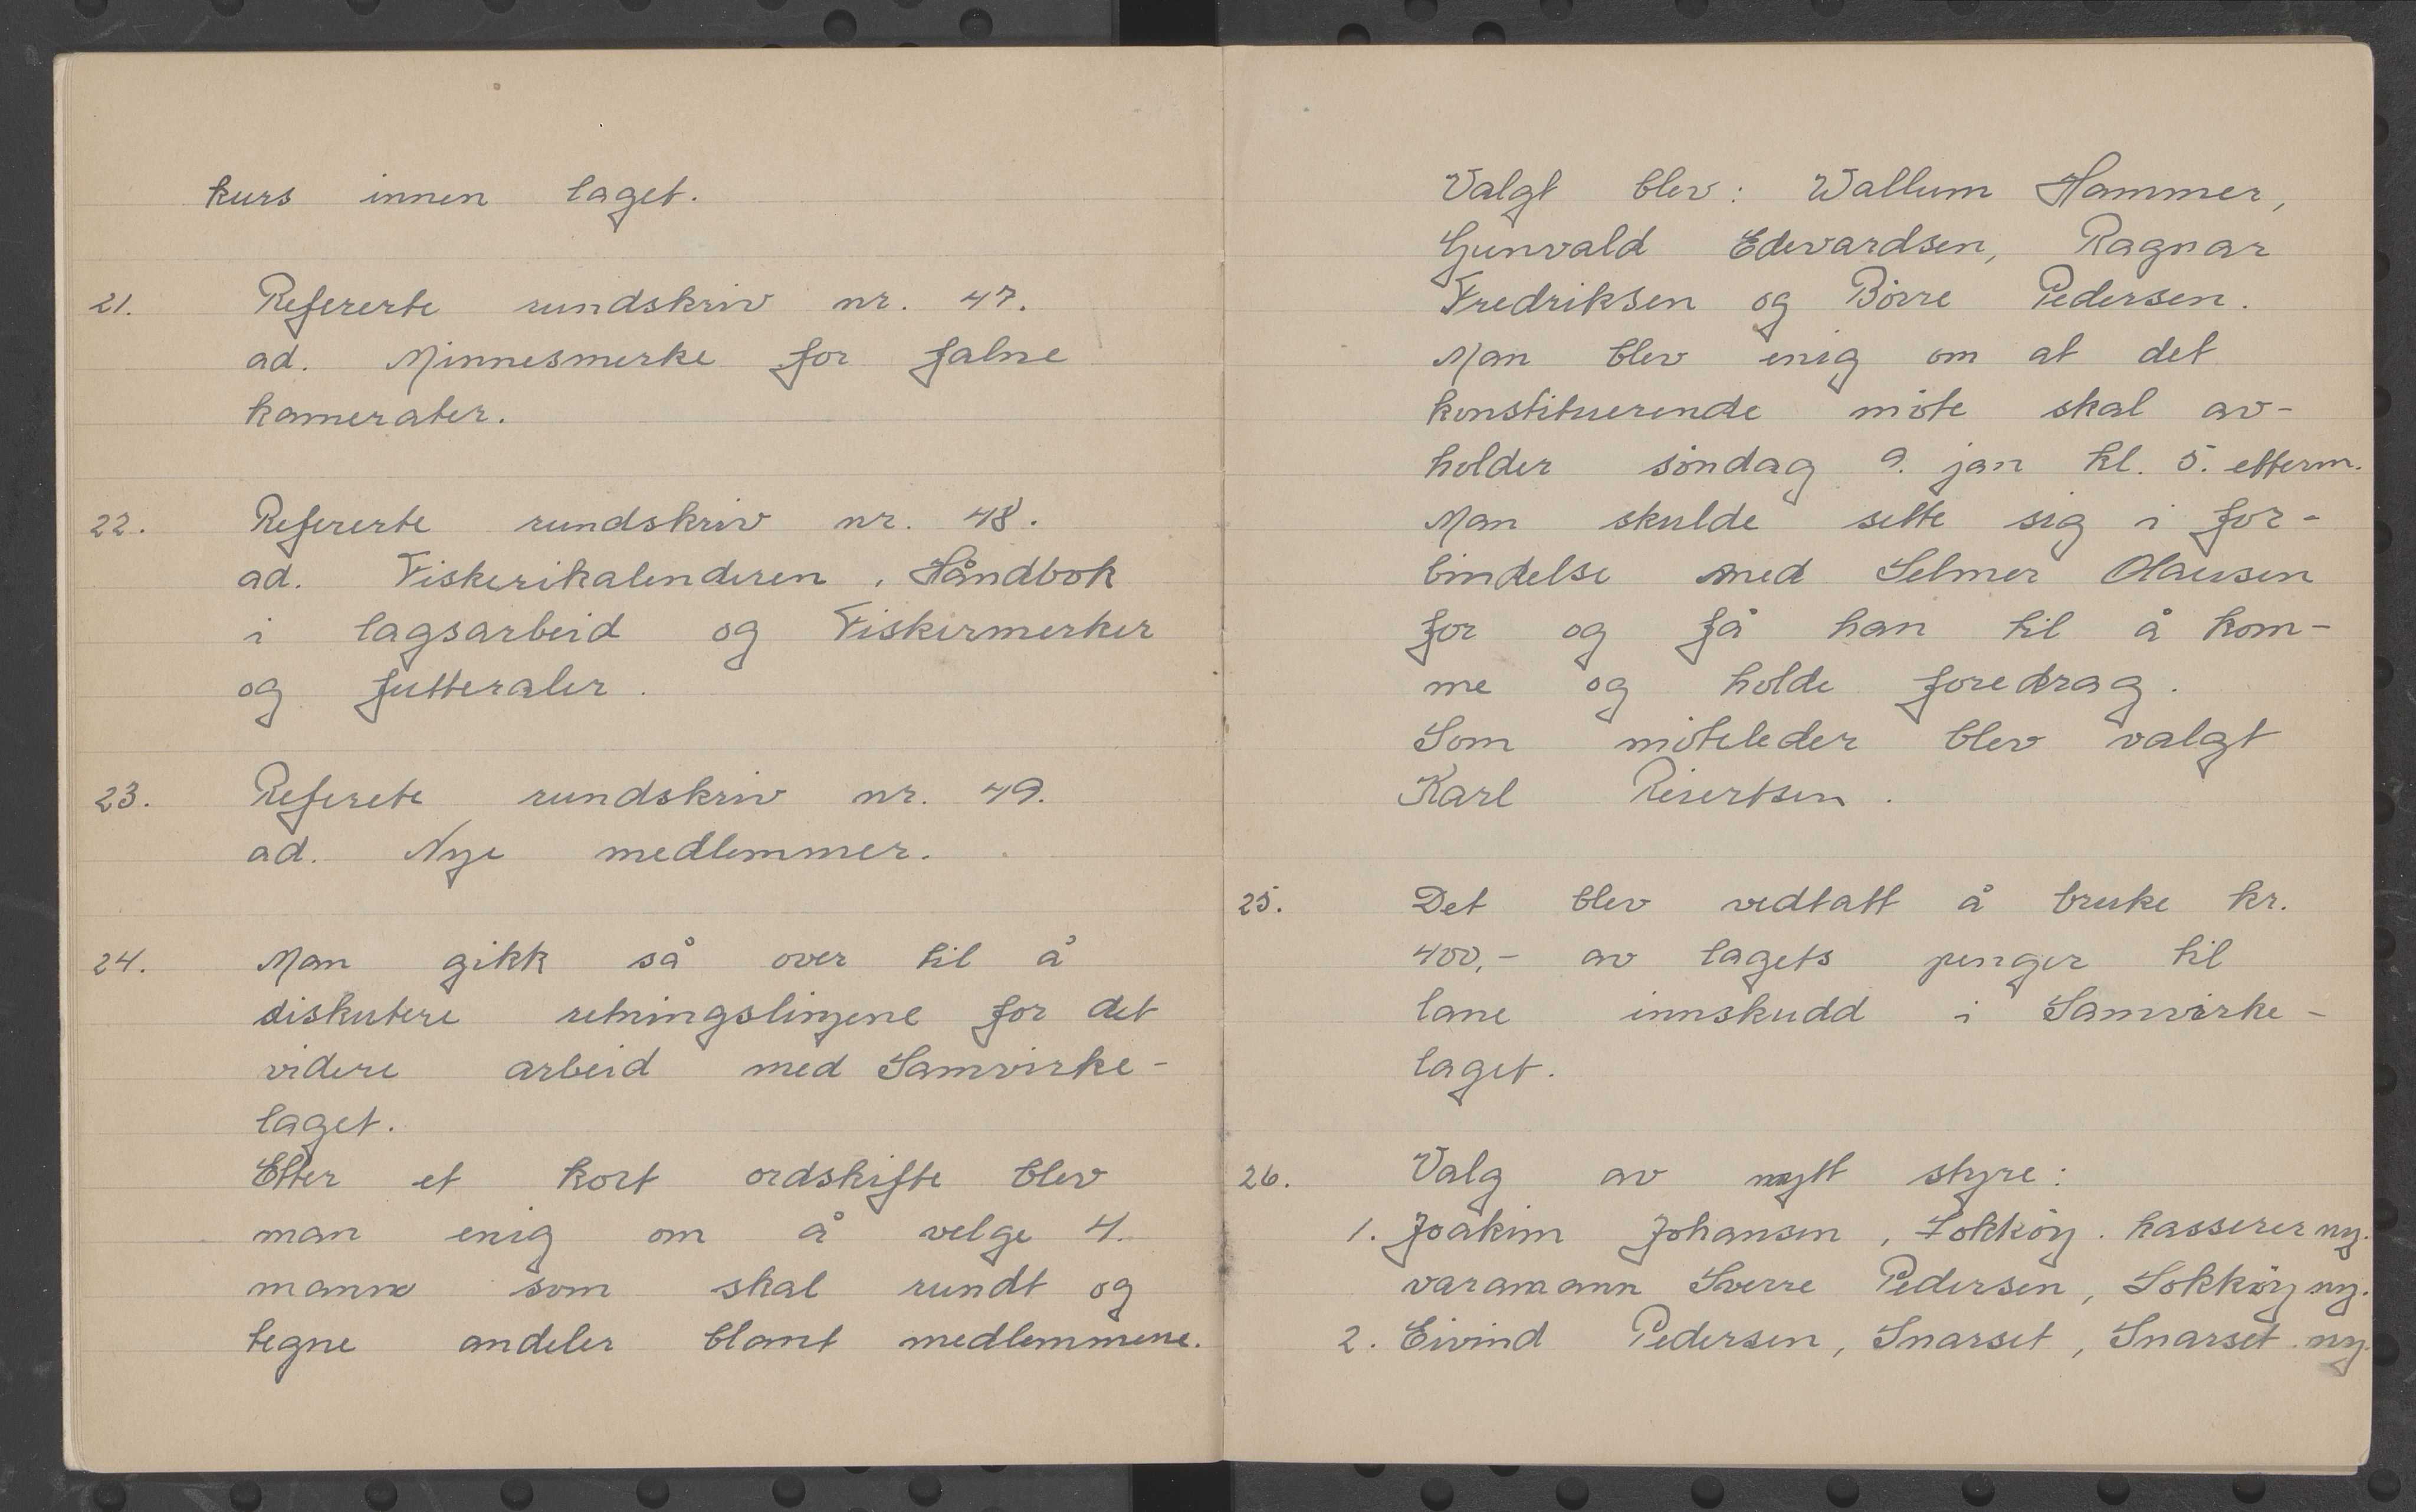 kurs innen laget.
21. Refererte rundskriv nr. 47.
ad. Minnesmerke for falne
kamerater.
22. Refererte rundskriv nr. 48.
ad. Fiskerikalenderen, Håndbok
i lagsarbeid og Fiskermerker
og futteraler.
23. Referete rundskriv nr. 49.
ad. Nye medlemmer.
24. Man gikk så over til å
diskutere retningslinjene for det
videre arbeid med Samvirke-
laget.
Etter et kort ordskifte blev
man enig om å velge 4.
mann som skal rundt og
tegne andeler blant medlemmene.
Valgt blev: Wallum Hammer,
Gunvald Edevardsen, Ragnar
Fredriksen og Börre Pedersen.
Man blev enig om at det
konstituerende möte skal av-
holder söndag 9. jan kl. 5. etterm.
Man skulde sette sig i for-
bindelse med Selmer Olausen
for og få han til å kom-
me og holde foredrag.
Som möteleder blev valgt
Karl Reiertsen.
25. Det blev vedtatt å bruke kr.
400,- av lagets penger til
lane innskudd i Samvirke-
laget.
26. Valg av nytt styre:
1. Joakim Johansen, Lokköy. kasserer ny.
varamann Sverre Pedersen, Lokköy ny.
2. Eivind Pedersen, Snarset, Snarset ny.